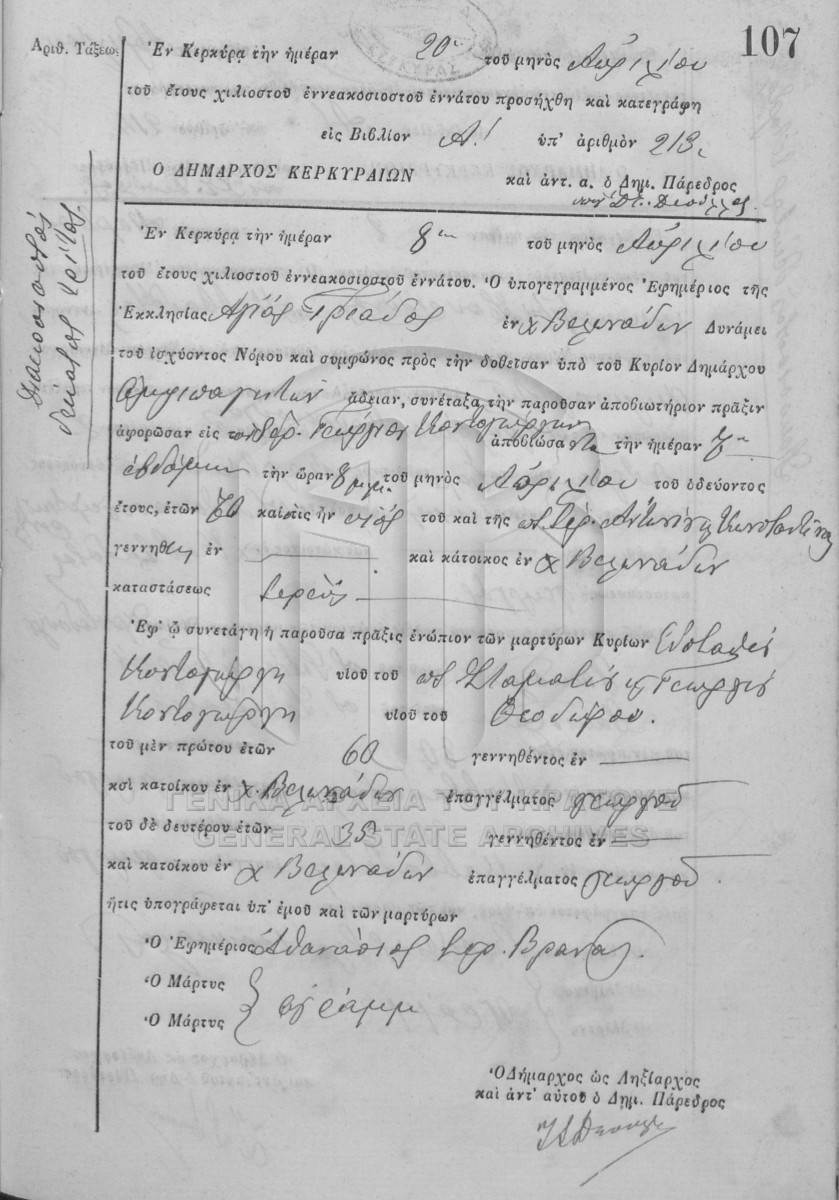 107
Ἀριθ. Τάξεως
Ἐν Κερκύρᾳ τὴν ἡμέραν 20ην τοῦ μηνὸς Ἀπριλίου
τοῦ ἔτους χιλιοστοῦ ἐννεακοσιοστοῦ ἐννάτου προσήχθη καὶ κατεγράφη
εἰς Βιβλίον Α! ὑπ' ἀριθμὸν 213
Ο ΔΗΜΑΡΧΟΣ ΚΕΡΚΥΡΑΙΩΝ καὶ ἀντ. α. ὁ Δημ. Πάρεδρος
Διακοσιοστὸς
δέκατος τρίτος.
Ἐν Κερκύρᾳ τὴν ἡμέραν 8ην τοῦ μηνὸς Ἀπριλίου
τοῦ ἔτους χιλιοστοῦ ἐννεακοσιοστοῦ ἐννάτου. Ὁ ὑπογεγραμμένος Ἐφημέριος τῆς
Ἐκκλησίας Ἁγίας Τριάδος ἐν χ Βελονάδων Δυνάμει
τοῦ ἰσχύοντος Νόμου καὶ συμφώνος πρὸς τὴν δοθεῖσαν ὑπὸ τοῦ Κυρίου Δημάρχου
ἄδειαν, συνέταξα τὴν παροῦσαν ἀποβιωτήριον πρᾶξιν
ἀφορῶσαν εἰς τὸν Ἱερ. Γεώργιον Κοντογιώργην ἀποβιώσαντα τὴν ἡμέραν 7ην
ἑβδόμην τὴν ὥραν 8 μ.μ. τοῦ μηνὸς Ἀπριλίου τοῦ ὁδεύοντος
ἔτους, ἐτῶν 70 καὶ ὅστις ἦν υἱὸς τοῦ καὶ τῆς ποτ. Ἱερ. Ἀντωνίου
γεννηθεὶς ἐν καὶ κάτοικος ἐν χ Βελονάδων
καταστάσεως Ἱερεὺς
Ἐφ' ᾧ συνετάγη ἡ παροῦσα πρᾶξις ἐνώπιον τῶν μαρτύρων Κυρίων Εὐσταθίου
Κοντογιώργη υἱοῦ τοῦ ποτ Σταματίου κ Γεωργίου
Κοντογιώργη υἱοῦ τοῦ Θεοδώρου.
τοῦ μὲν πρώτου ἐτῶν 60 γεννηθέντος ἐν
κσὶ κατοίκου ἐν χ. Βελονάδων ἐπαγγέλματος γεωργοῦ
ΓΕΝΙΚΑ ΑΡΧΕΙΑ ΤΟΥ ΚΡΑΤΟΥΣ
τοῦ δὲ δευτέρου ἐτῶν 35 γεννηθέντος ἐν
GENERAL STATE ARCHIVES
καὶ κατοίκου ἐν χ Βελονάδων ἐπαγγέλματος γεωργοῦ.
ἥτις ὑπογράφεται ὑπ' ἐμοῦ καὶ τῶν μαρτύρων
Ὁ Ἐφημέριος Ἀθανάσιος Ἱερ. Βρανᾶς.
Ὁ Μάρτυς
Ὁ Μάρτυς ἀγράμμ
Ὁ Δήμαρχος ὡς Ληξίαρχος
καὶ ἀντ' αὐτοῦ ὁ Δημ. Πάρεδρος